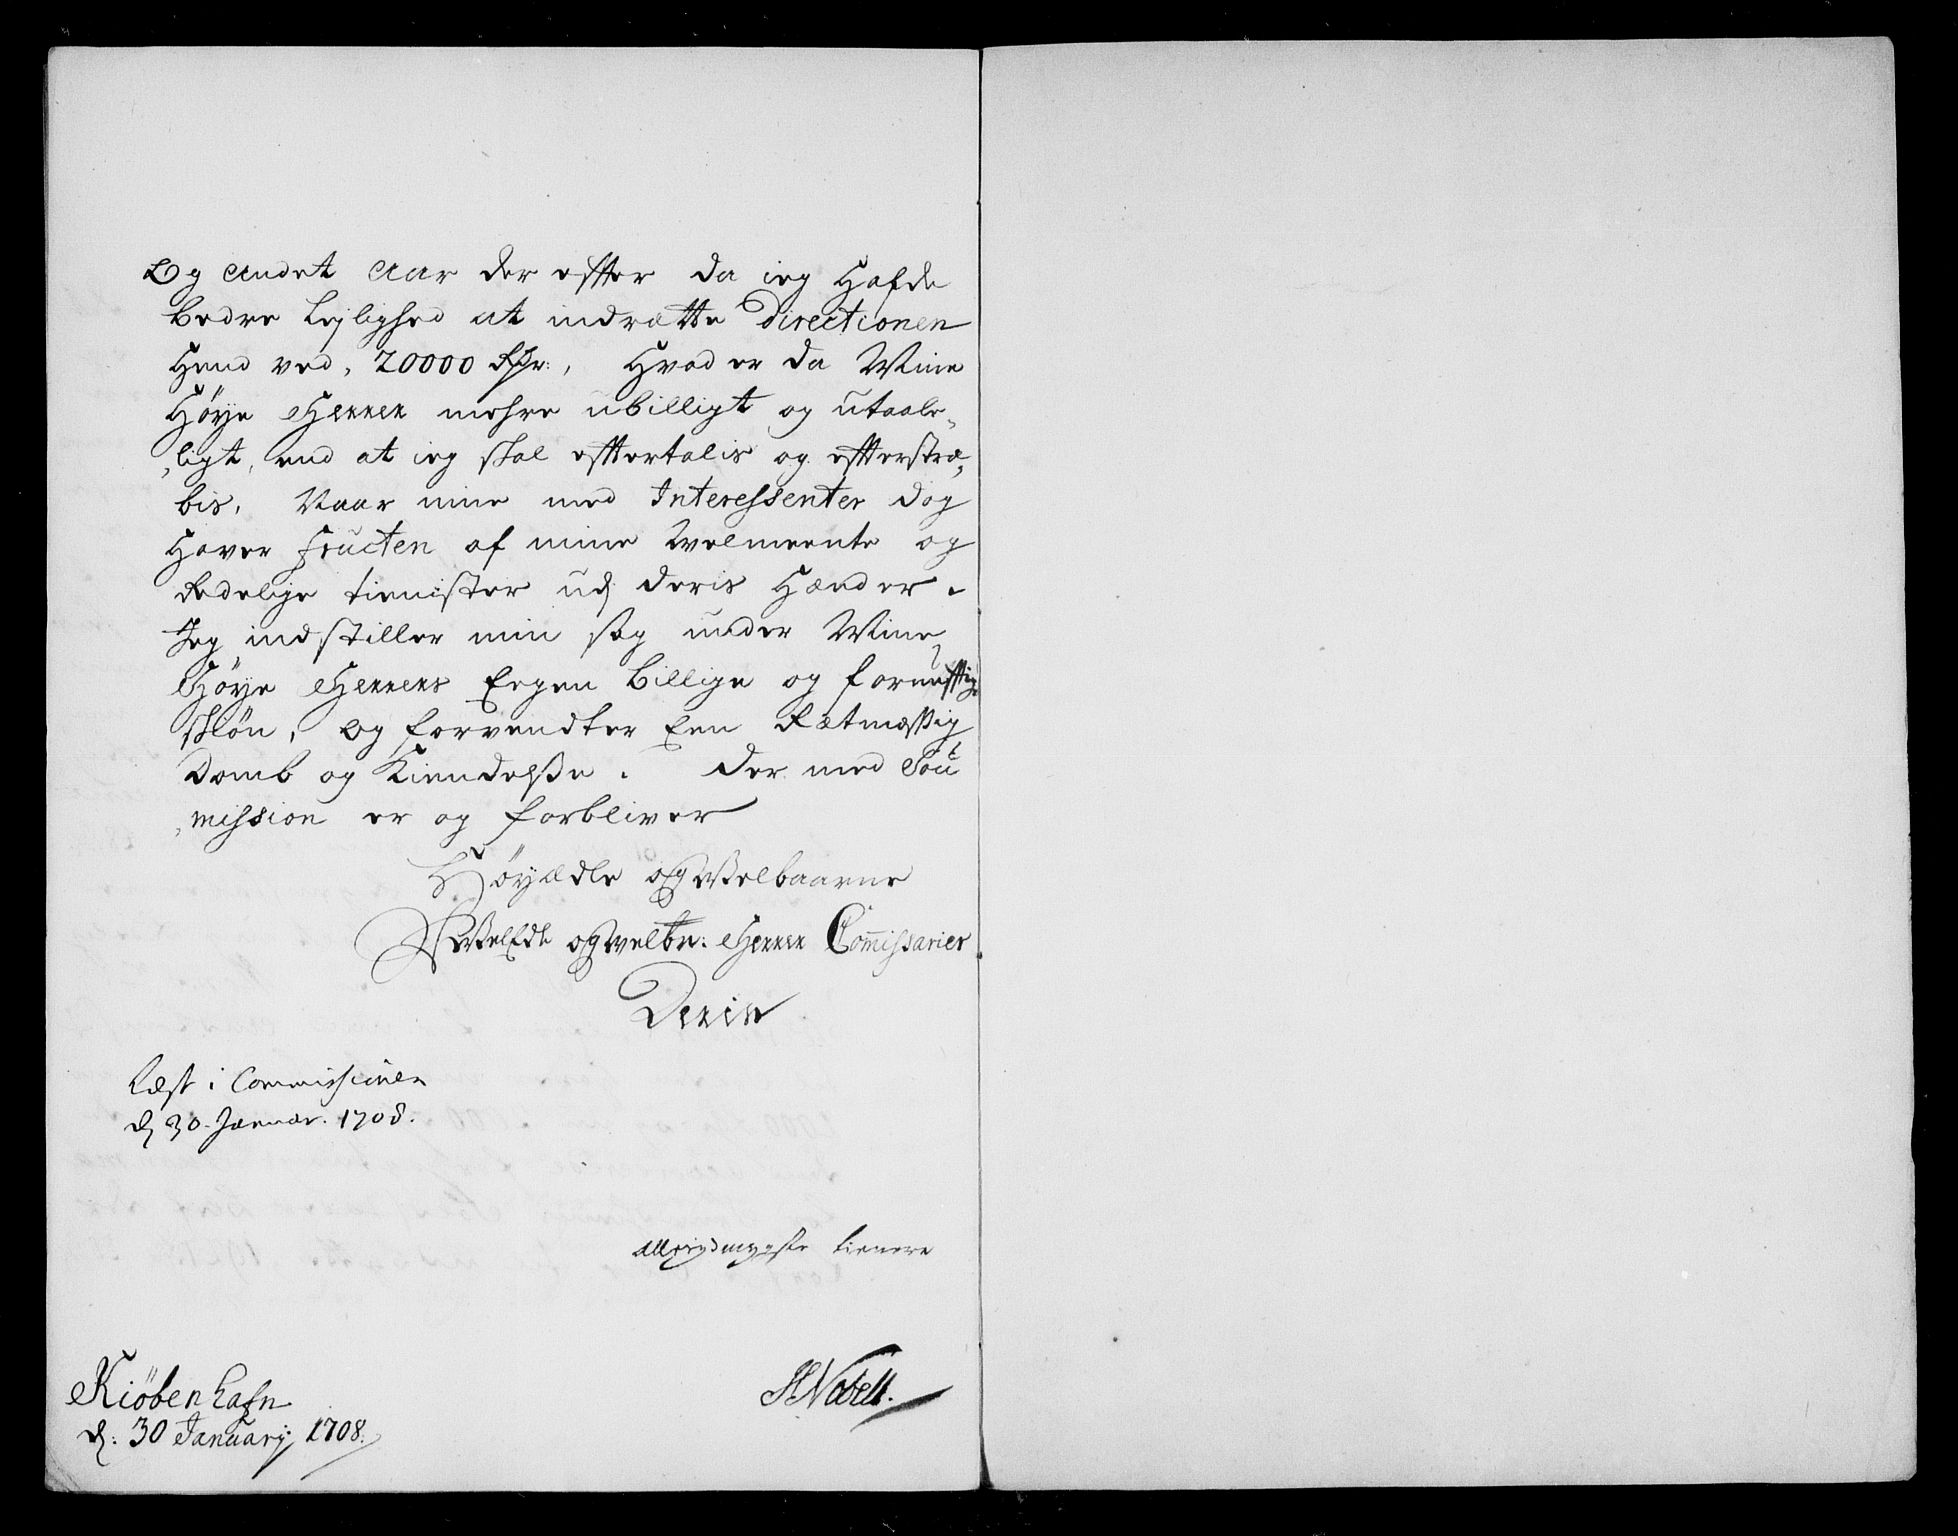 Og andet Aar der effter da ieg Hafde
bedre Lejlighed at indrætte Directionen
Hend ved, 20000 Rdr:, Hvad er da Mine
Høye Herrer mehre ubilligt og utaale„
„ligt, end at ieg skal efftertalis og effterstræ„
bis, Naar mine med Interessenter dog
Haver Fructen af mine Velmeente og
Redelige tienister udj deris Hænder.
Jeg indstiller min sag under Mine
Høye Herrers Eegen billige og fornufftig
skiøn, og forvendter Een Rætmæssig
Domb og Kiendelsse. Der med Sou
„mission er og forbliver
Høyædle og Velbaarne
VelEdle og velbr: Herrer Commissarier
Deris
Læst i Commissionen
dj 30. Januar. 1708.
allerydmygste tienere
Kiöbenhafn
d: 30 January 1708.